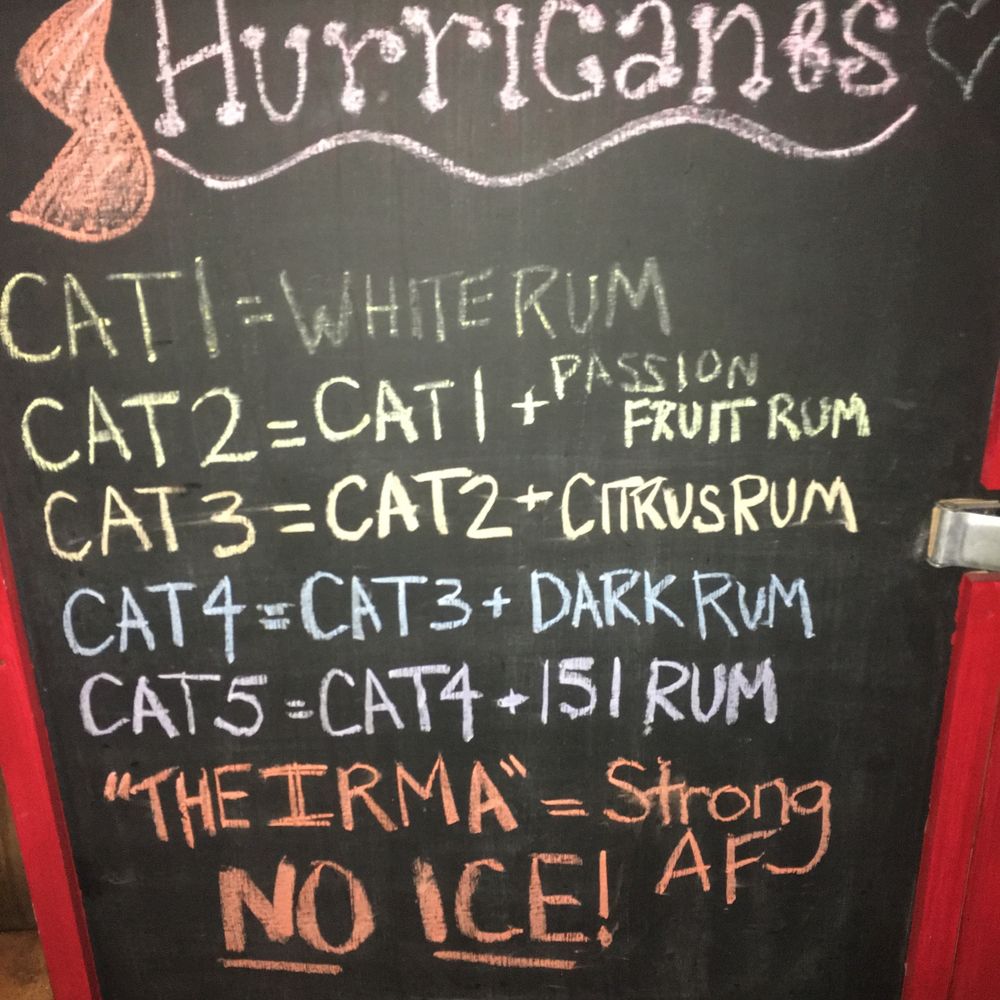 Hurricanes
CAT 1 = WHITE RUM
CAT 2 = CAT 1 + PASSION
FRUIT RUM
CAT 3 = CAT 2 + CITRUS RUM
CAT 4 = CAT 3 + DARK RUM
CAT 5 = CAT 4 + 151 RUM
"THE IRMA" = Strong
AF
NO ICE!